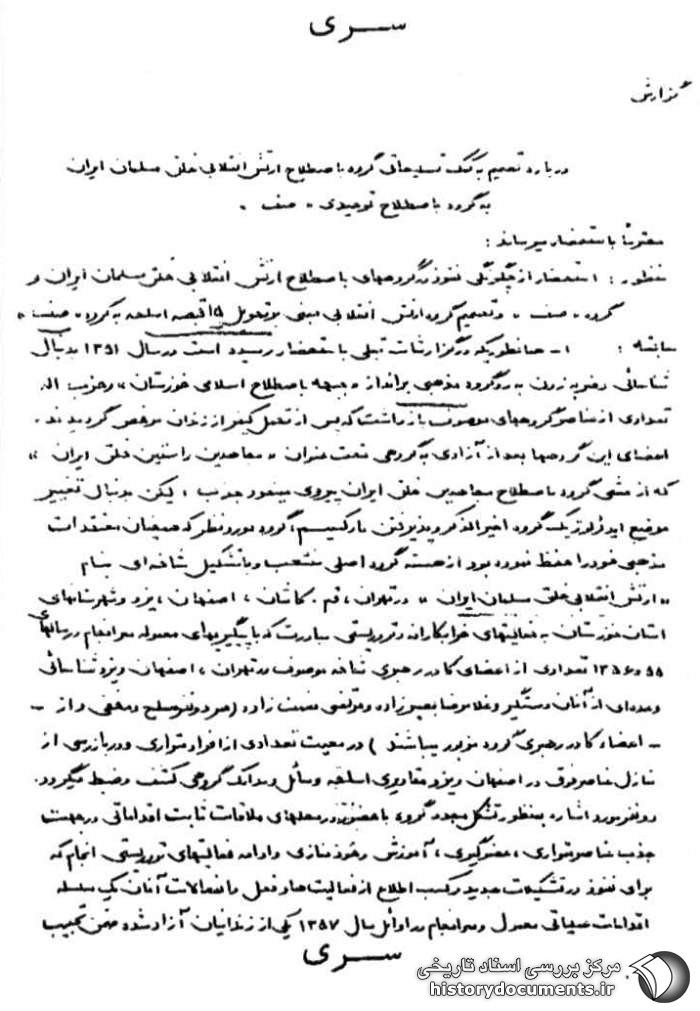 سری
گزارش
درباره تصمیم به کمک تسلیحاتی گروه باصطلاح ارتش انقلابی خلق مسلمان ایران
به گروه باصطلاح توحیدی « صف »
محترماً باستحضار میرساند :
منظور : استحضار از چگونگی نفوذ در گروههای باصطلاح ارتش انقلابی خلق مسلمان ایران و
گروه « صف » و تصمیم گروه ارتش انقلابی مبنی بر تحویل ۱۵ قبضه اسلحه به گروه « صف »
سابقه : ۱- همانطور که در گزارشات قبلی باستحضار رسیده است در سال ۱۳۵۱ بدنبال
شناسائی و ضربه زدن به دو گروه مذهبی برانداز « جبهه باصطلاح اسلامی خوزستان » و حزب اله
تعدادی از عناصر گروههای موصوف بازداشت که پس از تحمل کیفر از زندان مرخص گردیدند .
اعضای این گروهها بعد از آزادی به گروهی تحت عنوان « مجاهدین راستین خلق ایران »
که از مشی گروه باصطلاح مجاهدین خلق ایران پیروی مینمود جذب ، لیکن بدنبال تغییر
موضع ایدئولوژیک گروه اخیرالذکر و پذیرفتن مارکسیسم ، گروه مورد نظر که همچنان معتقدات
مذهبی خود را حفظ نموده بود از هسته گروه اصلی منشعب و با تشکیل شاخه ای بنام
« ارتش انقلابی خلق مسلمان ایران » در تهران ، قم . کاشان ، اصفهان ، یزد و شهرستانهای
استان خوزستان به فعالیتهای خرابکارانه و تروریستی مبادرت که با پیگیریهای معموله سرانجام در سالهای
۵۵ و ۱۳۵۶ تعدادی از اعضای کادر رهبری شاخه موصوف در تهران ، اصفهان و یزد شناسائی
و عده‌ای از آنان دستگیر و غلامرضا بصیرزاده و مرتضی نعمت زاده (هر دو نفر مسلح و مخفی و از -
- اعضاء کادر رهبری گروه مزبور میباشند ) در معیت تعدادی از افراد متواری و در بازرسی از
منازل عناصر فوق در اصفهان و یزد مقادیری اسلحه وسائل و مدارک گروهی کشف و ضبط میگردد.
دو نفر مورد اشاره بمنظور تشکل مجدد گروه با حضور در محلهای ملاقات ثابت اقداماتی در جهت
جذب عناصر متواری ، عضوگیری ، آموزش و خودسازی و ادامه فعالیتهای تروریستی انجام که
برای نفوذ در تشکیلات جدید و کسب اطلاع از فعالیت ها و فعل و انفعالات آنان یک سلسله
اقدامات عملیاتی معمول و سرانجام در اوائل سال ۱۳۵۷ یکی از زندانیان آزاد شده ضمن تحبیب
سری
مرکز بررسی اسناد تاریخی
historydocuments.ir